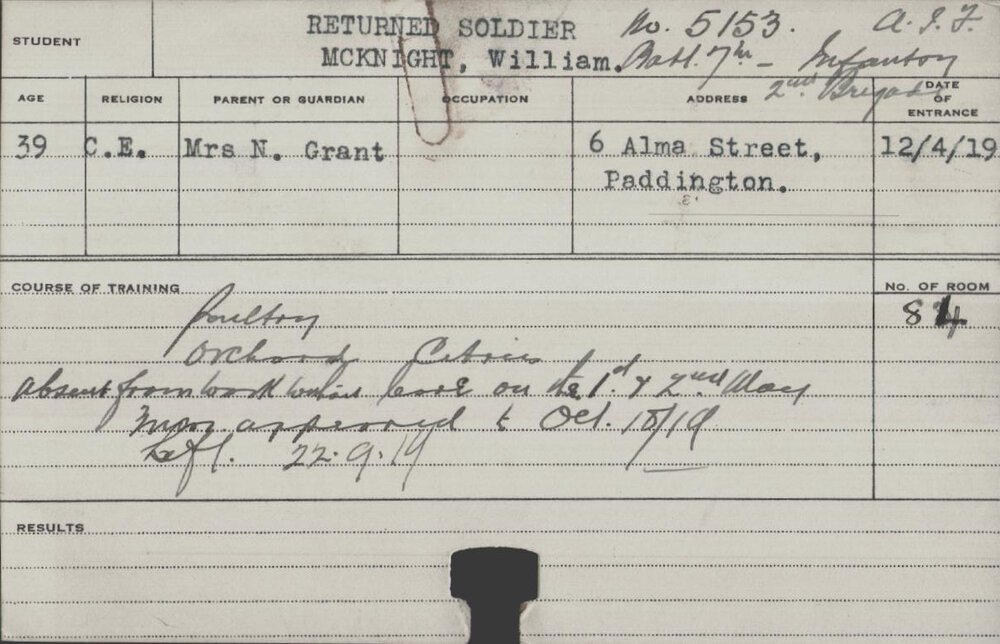 STUDENT
RETURNED SOLDIER No. 5153. A.I.F.
MCKNIGHT, William. Batt. 7th - Infantry
2nd Brigade
AGE RELIGION PARENT OR GUARDIAN OCCUPATION ADDRESS DATE OF ENTRANCE
39 C.E. Mrs N. Grant 6 Alma Street, 12/4/19
Paddington.
COURSE OF TRAINING No. OF ROOM
Poultry 84
Orchard Citrus
Absent from work without leave on the 1st & 2nd May
approved to Oct. 10/19
Left. 22.9.19
RESULTS